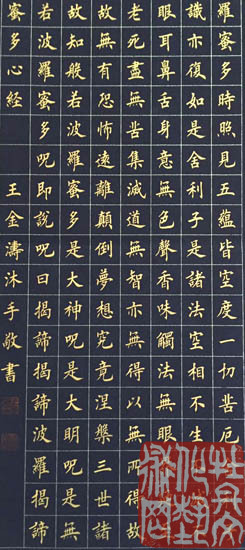 蜜多時照見五蘊皆空度一切苦厄
識亦復如是舍利子是諸法空相不生
眼耳鼻舌身意無色聲香味觸法無
老死盡無苦集滅道無智亦無得以無所得故
故無有恐怖遠離顛倒夢想究竟涅槃三世諸
故知般若波羅蜜多是大神呪是大明呪是無
若波羅蜜多呪即說呪曰揭諦揭諦波羅揭諦
蜜多心經 王金濤沐手敬書